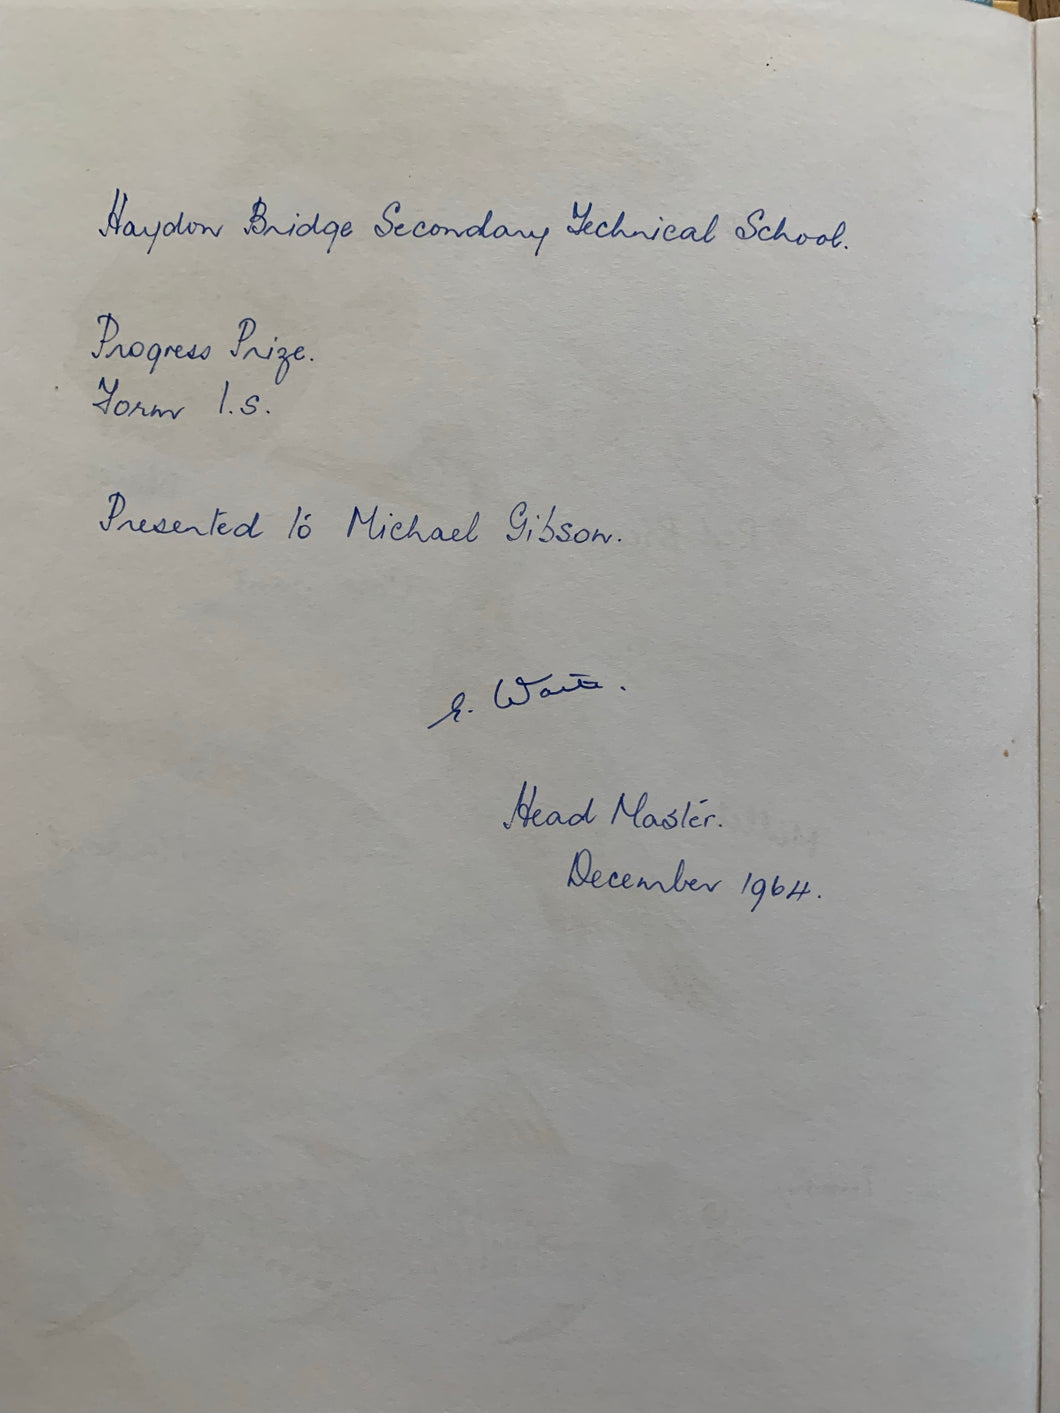 Haydon Bridge Secondary Technical School.
Progress Prize.
Form 1.s.
Presented to Michael Gibson.
E. Waite.
Head Master.
December 1964.